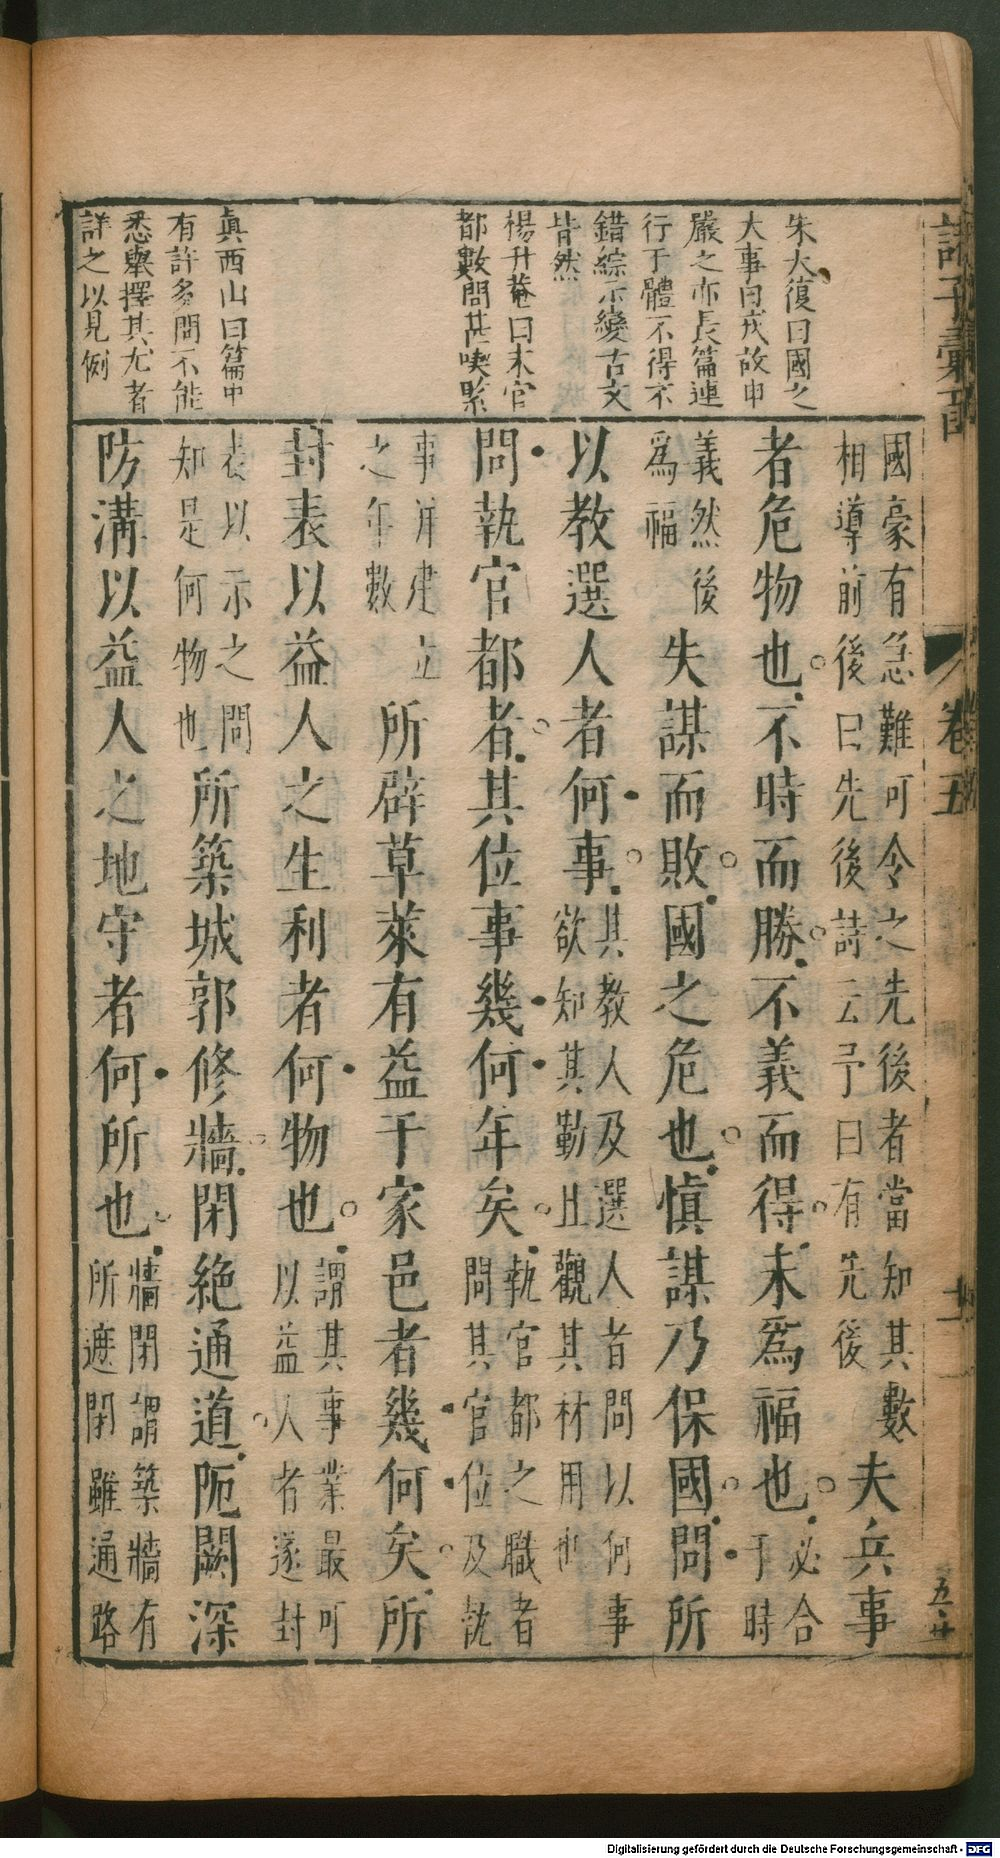 朱大復曰國之
大事曰戎故申
嚴之亦長篇連
行于體不得不
錯綜示變古文
皆然
楊升菴曰末官
都數問甚喫緊
眞西山曰篇中
有許多問不能
悉舉擇其尤者
詳之以見例
國豪有急難可令之先後者當知其數
相導前後曰先後詩云予曰有先後
夫兵事
者危物也不時而勝不義而得未爲福也
必合
于時
義然後
爲福
失謀而敗國之危也愼謀乃保國問所
以教選人者何事
其教人及選人者問以何事
欲知其勤且觀其材用也
問執官都者其位事幾何年矣
執官都之職者
問其官位及執
事幷建立
之年數
所辟草萊有益于家邑者幾何矣所
封表以益人之生利者何物也
謂其事業最可
以益人者遂封
表以示之問
知是何物也
所築城郭修牆閉絕通道阨闕深
防溝以益人之地守者何所也
牆閉謂築牆有
所遮閉雖通路
諸子彙函
卷五
五
Digitalisierung gefördert durch die Deutsche Forschungsgemeinschaft - DFG